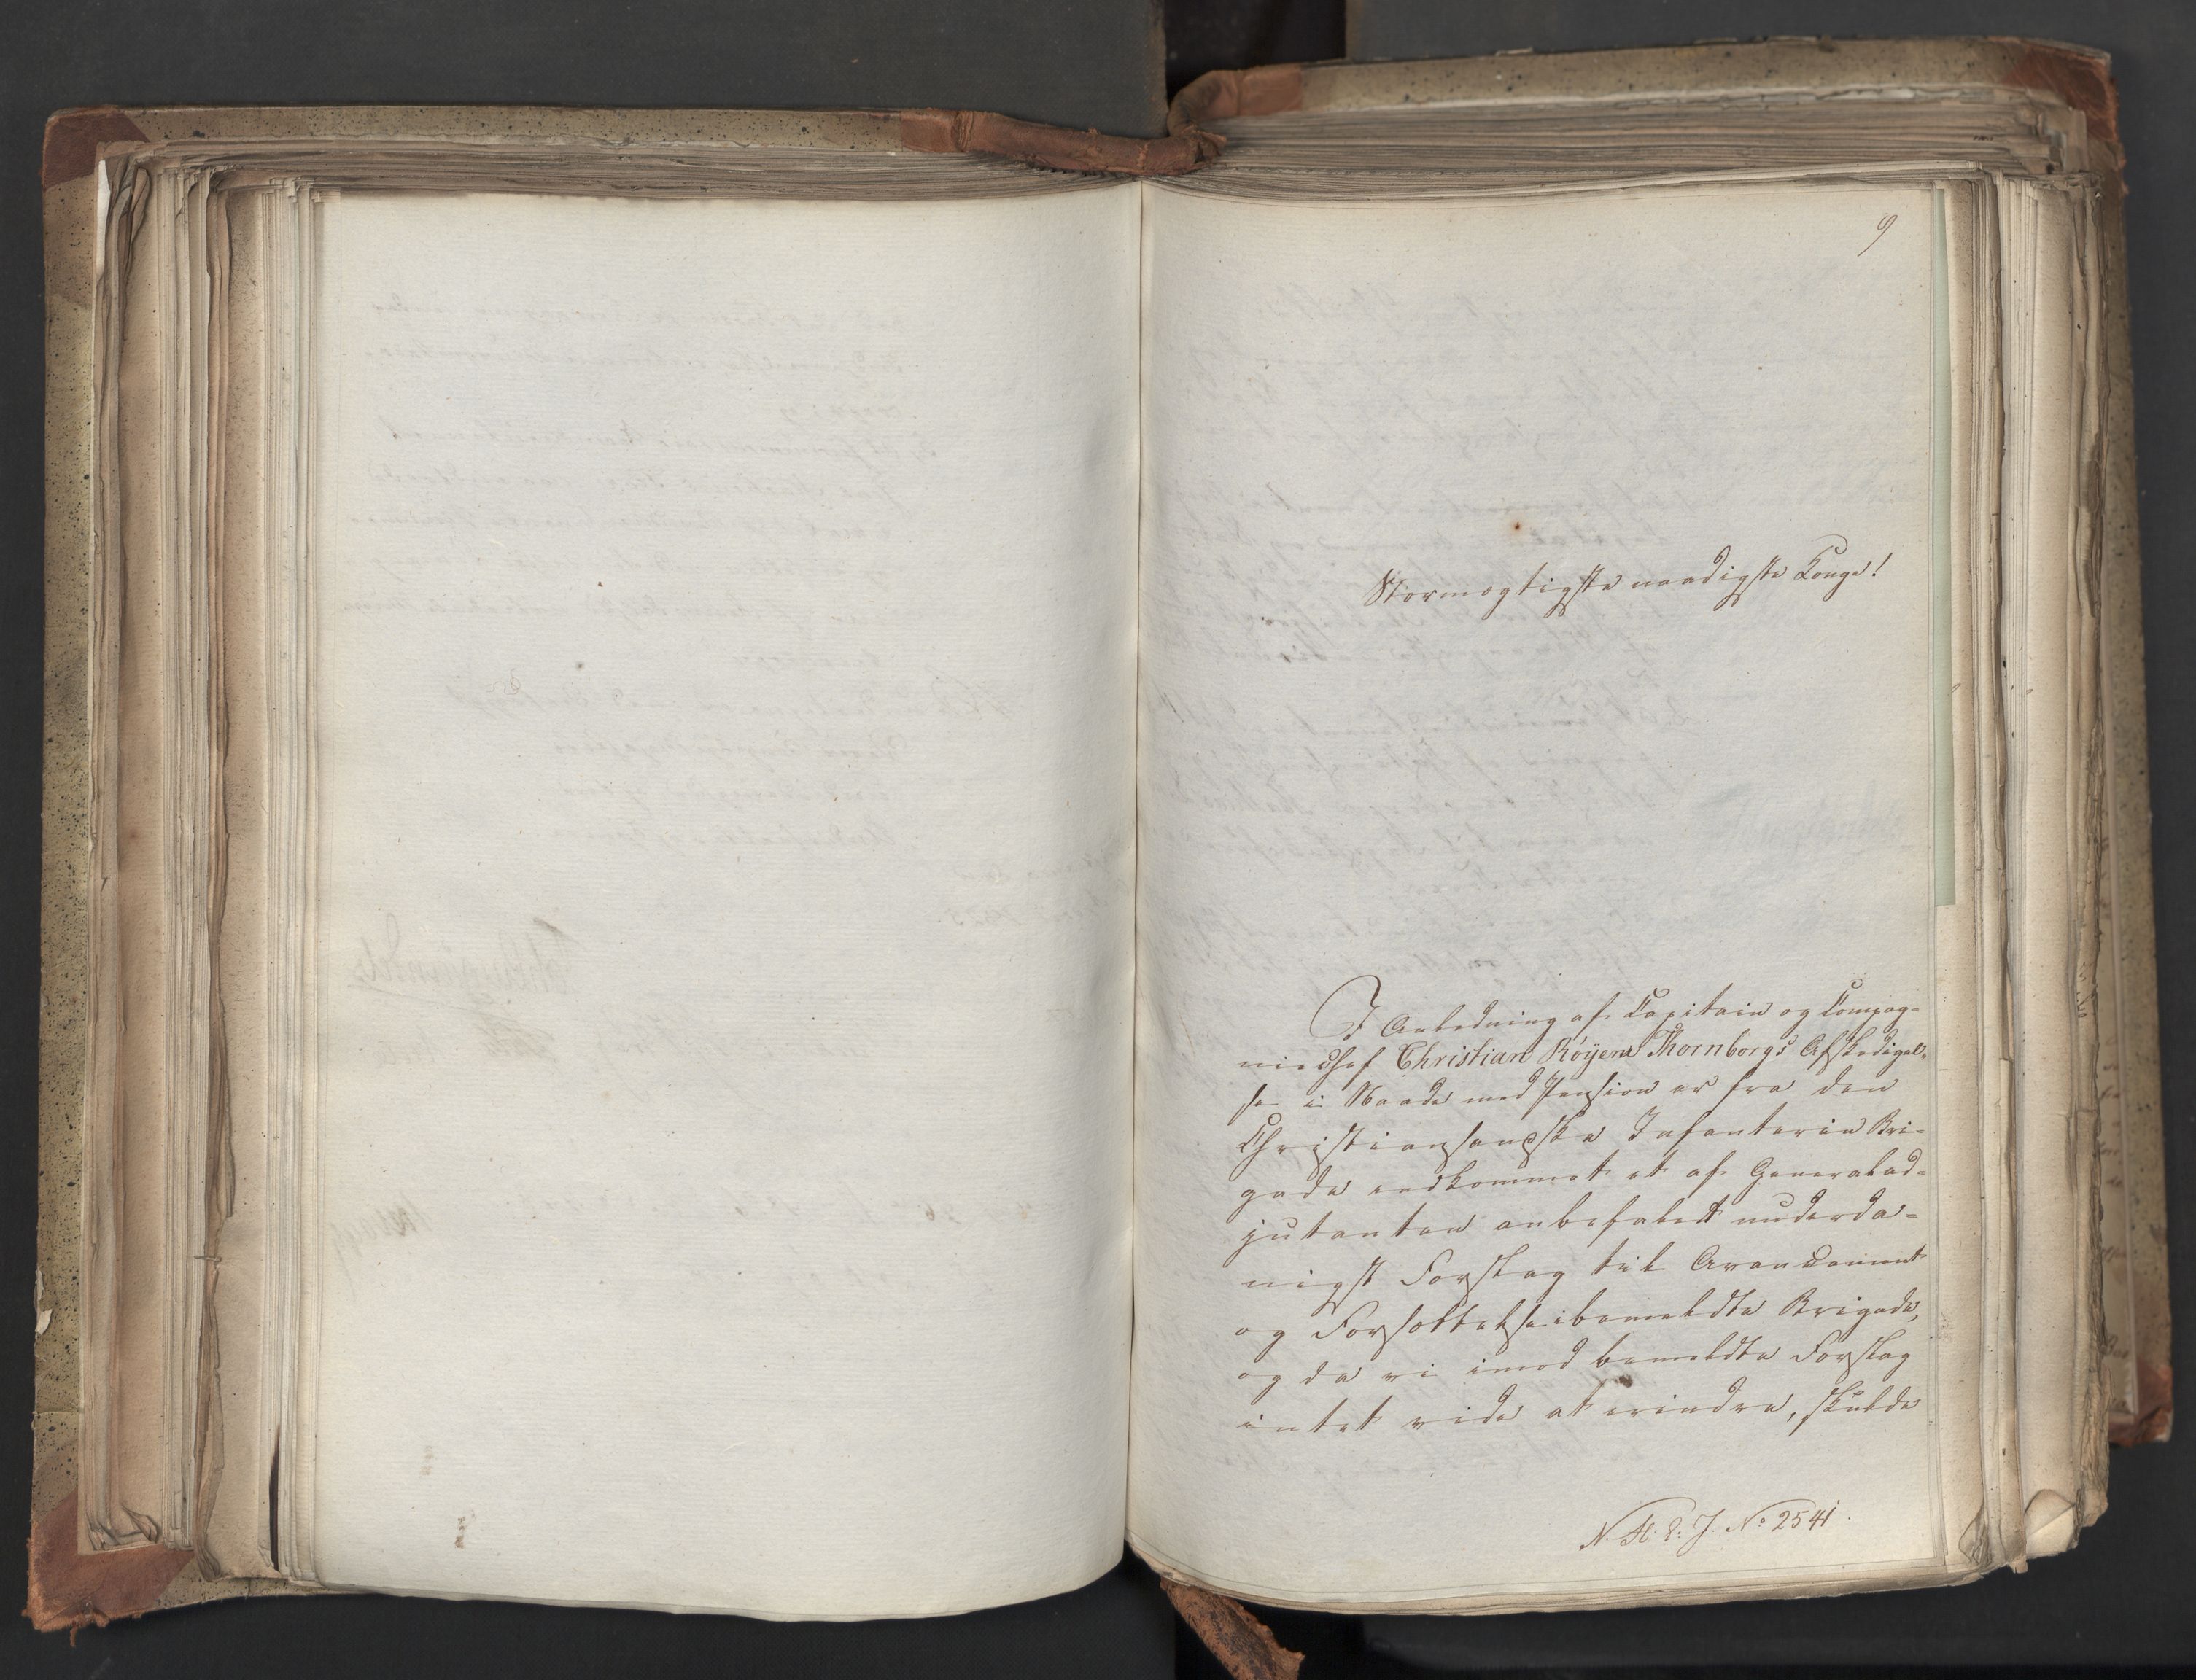 9
Stormægtigste naadigste Konge!
I Anledning af Capitain og Compag-
niechef Christian Röyem Thornborgs Afskedigel-
se i Naade med Pension er fra den
Christiansandske Infanterie Bri-
gade indkommet et af Generalad-
jutanten anbefalet underda-
nigst Forslag til Avancement
og Forsættelse i bemeldte Brigade,
og da vi imod bemeldte Forslag
intet vide at erindre, skulde
N. A. E. J. No 2541.